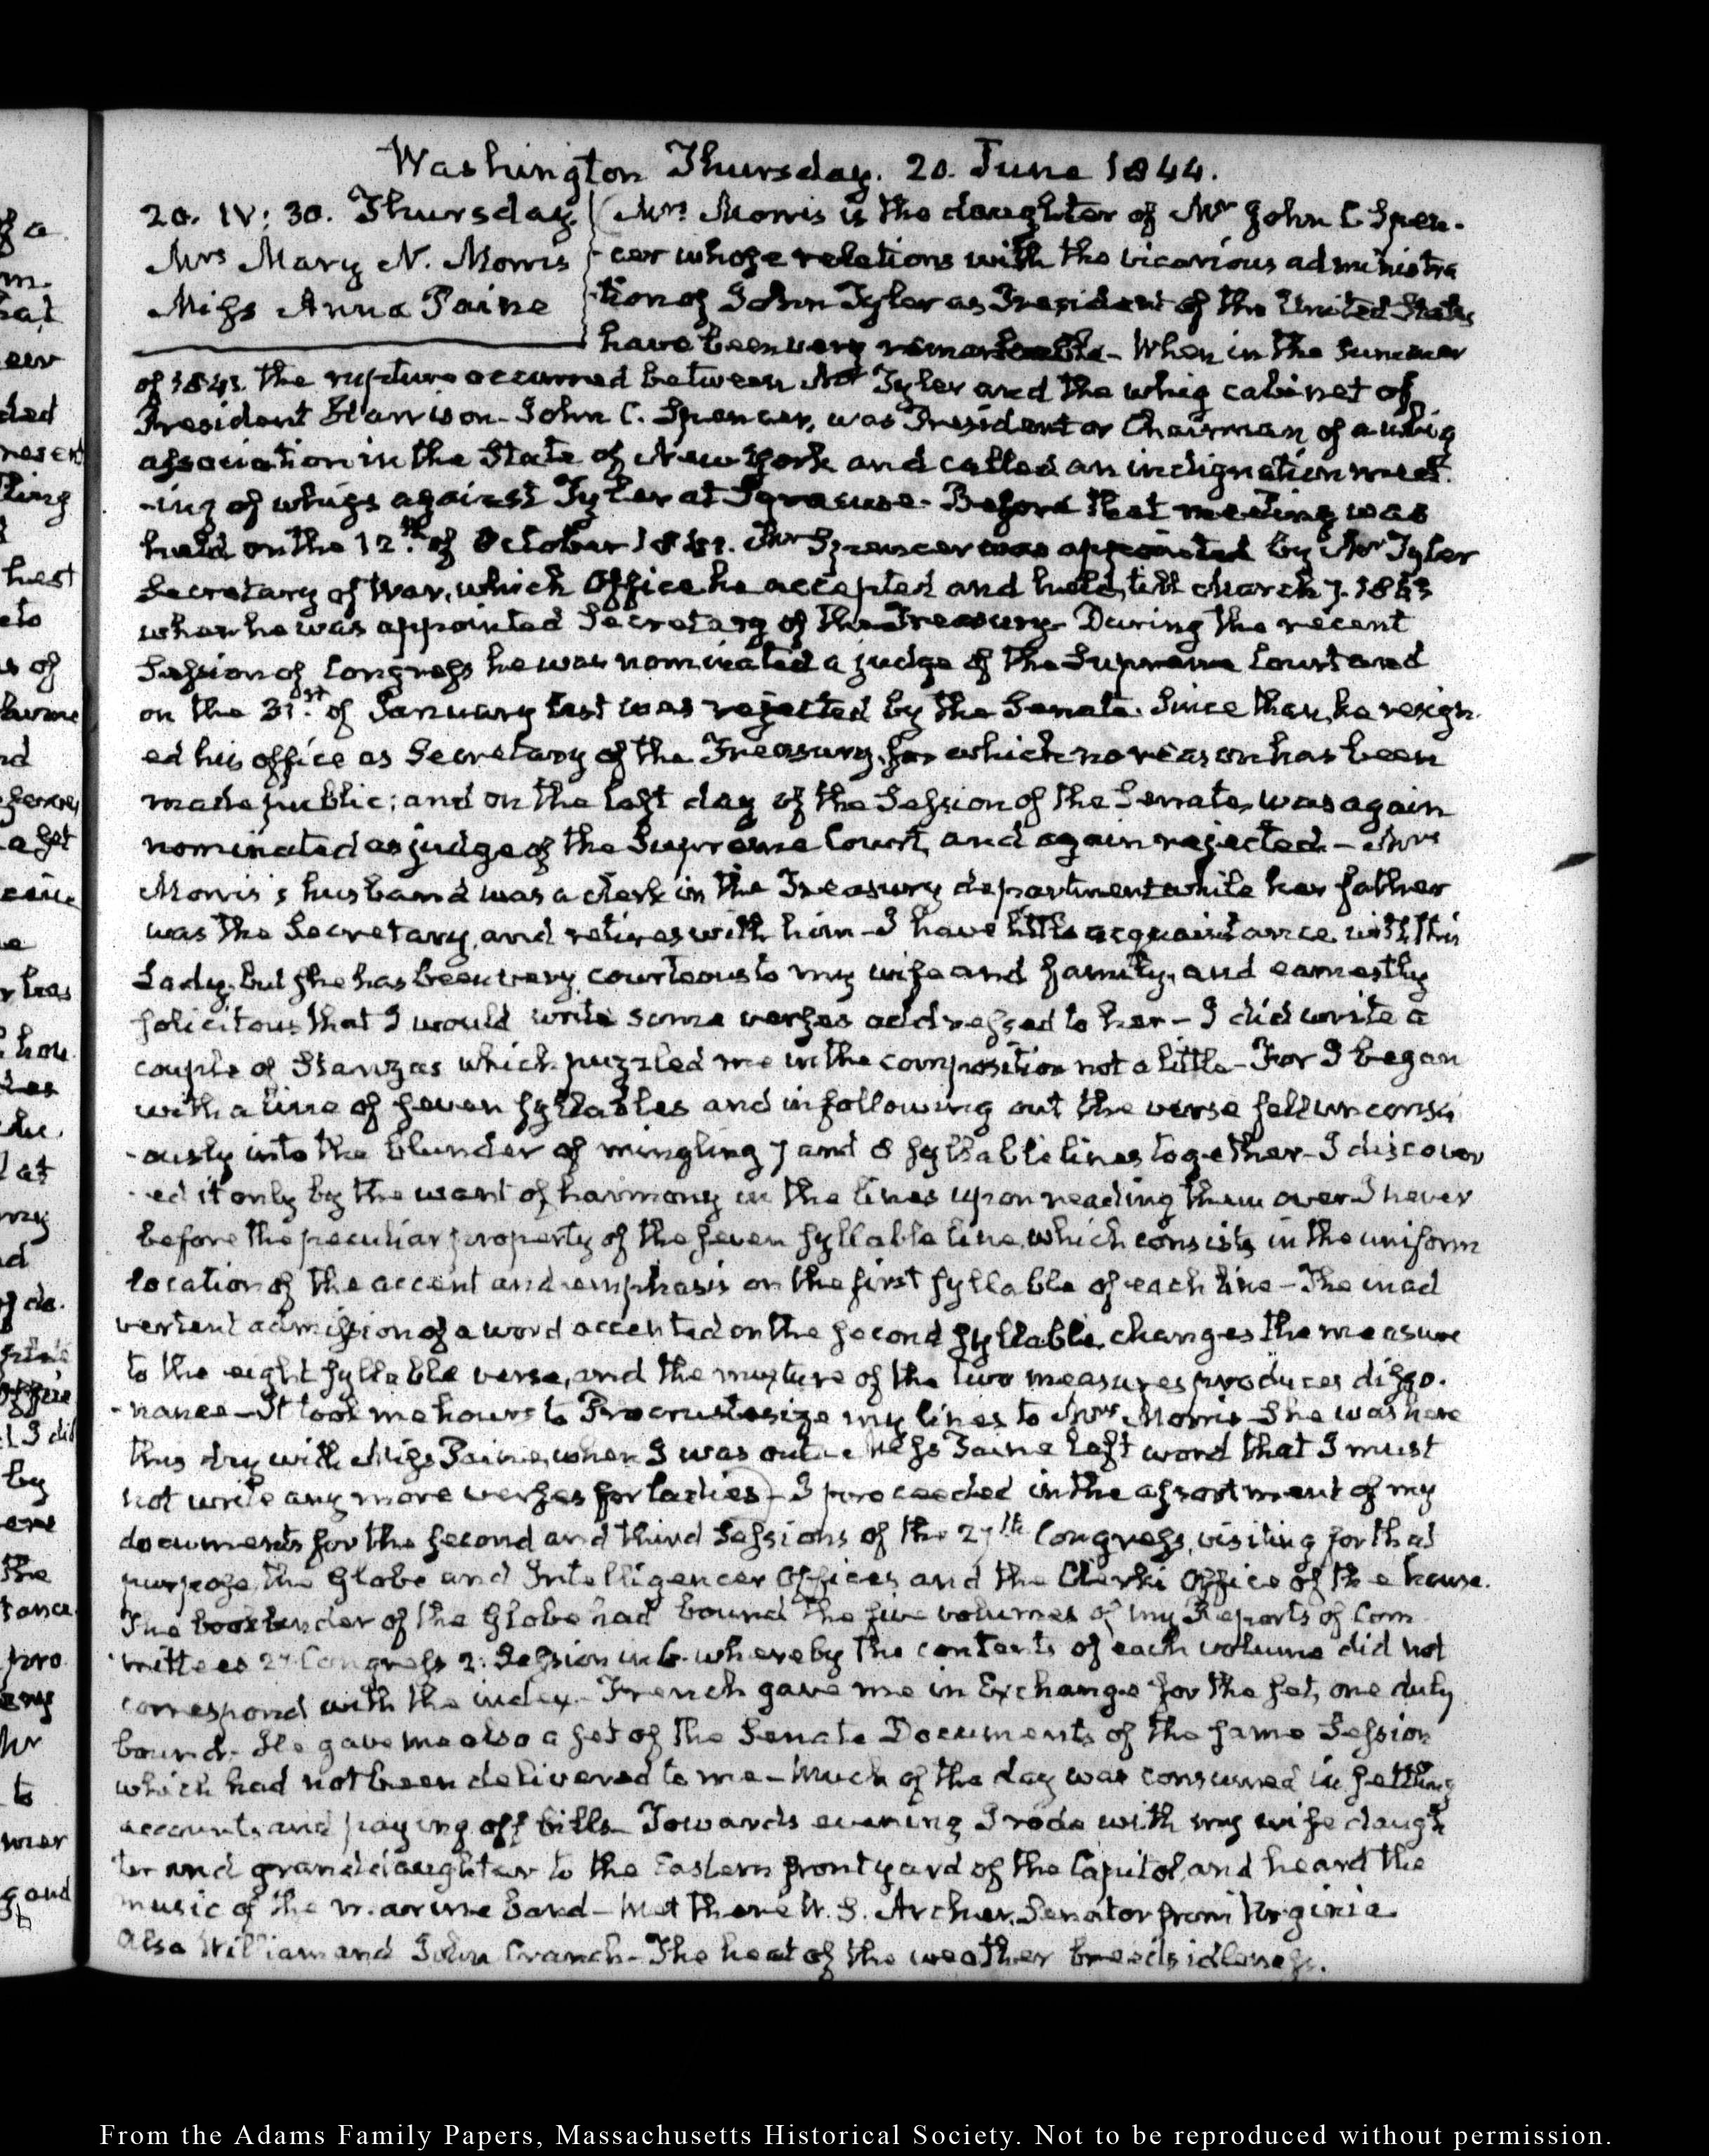 Washington Thursday. 20. June 1844.
20. IV: 30. Thursday. Mrs Morris is the daughter of Mr John C Spen-
Mrs Mary N. Morris -cer whose relations with the vicarious administra
Miss Anna Paine -tion of John Tyler as President of the United States
have been very remarkable - When in the Summer
of 1841. the rupture occurred between Mr Tyler and the whig cabinet of
President Harrison - John C. Spencer, was President or Chairman of a whig
association in the State of New York and called an indignation meet-
-ing of whigs against Tyler at Syracuse - Before that meeting was
held on the 12th of October 1841. Mr Spencer was appointed by Mr Tyler
Secretary of War, which Office he accepted and held, till March 7. 1843
when he was appointed Secretary of the Treasury - During the recent
Session of Congress he was nominated a judge of the Supreme Court and
on the 31st of January last was rejected by the Senate. Since then, he resign-
ed his office as Secretary of the Treasury, for which no reason has been
made public; and on the last day of the Session of the Senate, was again
nominated as judge of the Supreme Court, and again rejected - Mrs
Morris's husband was a clerk in the Treasury department while her father
was the Secretary, and retires with him - I have little acquaintance with this
Lady, but she has been very courteous to my wife and family, and earnestly
solicitous that I would write some verses addressed to her - I did write a
couple of Stanzas which puzzled me in the composition not a little - For I began
with a line of seven syllables and in following out the verse fell unconsci
-ously into the blunder of mingling 7 and 8 syllable lines together - I discover
-ed it only by the want of harmony in the lines upon reading them over I never
before the peculiar property of the seven syllable line, which consists in the uniform
location of the accent and emphasis on the first syllable of each line - The inad
vertent admission of a word accented on the second syllable, changes the measure
to the eight syllable verse, and the mixture of the two measures produces disso-
-nance - It took me hours to Procrustesize my lines to Mrs Morris - She was here
this day with Miss Paine, when I was out - Miss Paine left word that I must
not write any more verses for ladies - I proceeded in the assortment of my
documents for the second and third Sessions of the 27th Congress, visiting for that
purpose, the Globe and Intelligencer Offices and the Clerk's Office of the house.
The bookbinder of the Globe had bound the five volumes of my Reports of Com
-mittees 27. Congress 2. Session in 6. whereby the contents of each volume did not
correspond with the index - French gave me in Exchange for the set, one duly
bound - He gave me also a set of the Senate Documents of the same Session
which had not been delivered to me - Much of the day was consumed in settling
accounts and paying off bills - Towards evening I rode with my wife daugh
ter and granddaughter to the Eastern front yard of the Capitol, and heard the
music of the marine Band - Met there W. S. Archer, Senator from Virginia
also William and John Cranch - The heat of the weather breeds idleness.
From the Adams Family Papers, Massachusetts Historical Society. Not to be reproduced without permission.